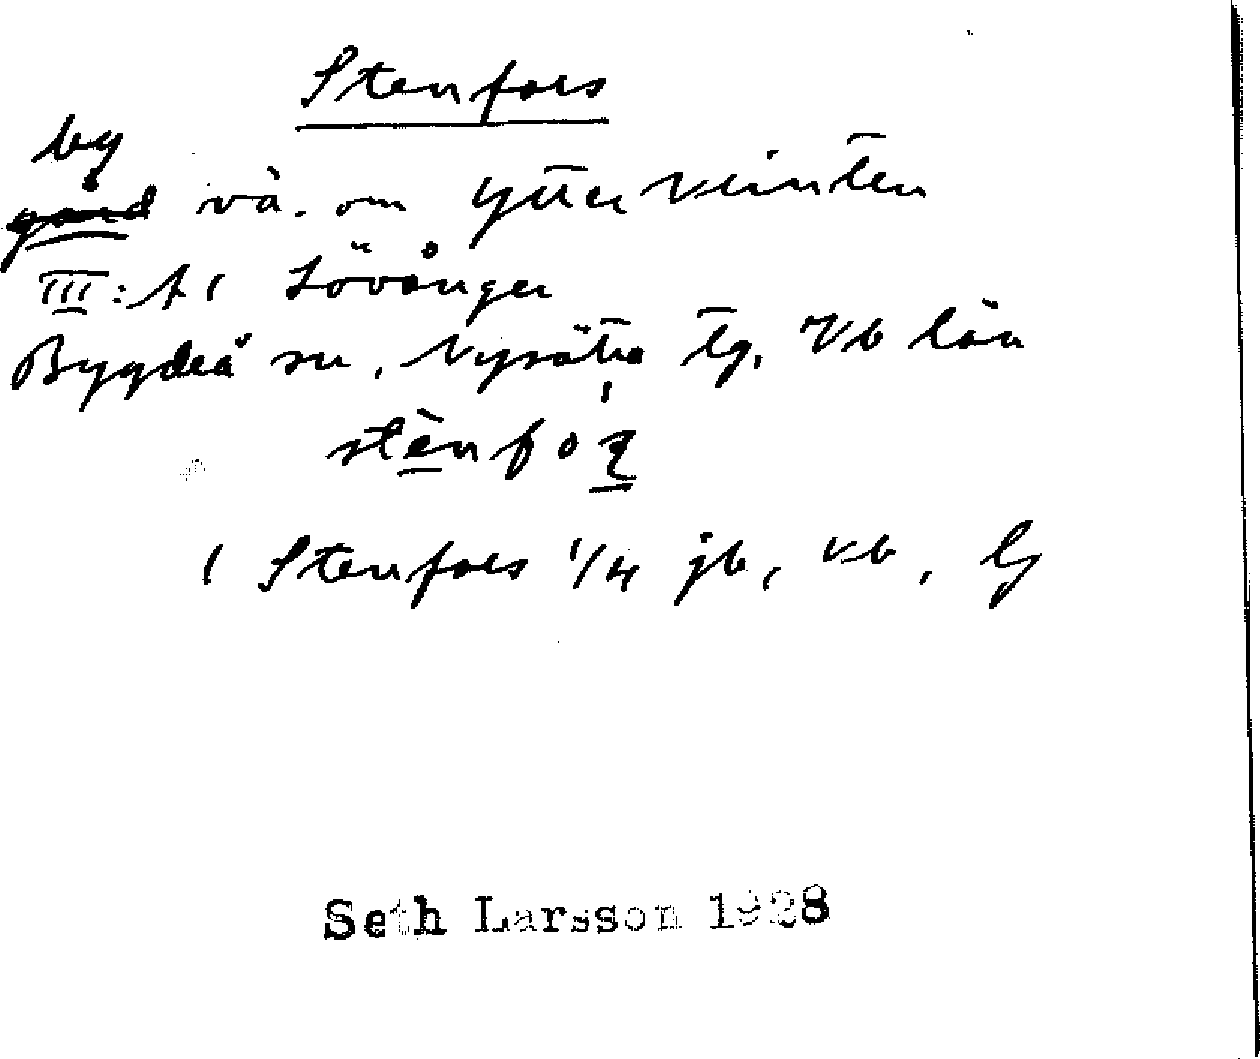 Stenfors
by
gård vä. om Ytterklinten
III: A1 Lövånger
Bygdeå sn, Nysätra tg, Vb län
stènfo
1 Stenfors 1/4 jb, kb, lj
Seth Larsson 1928